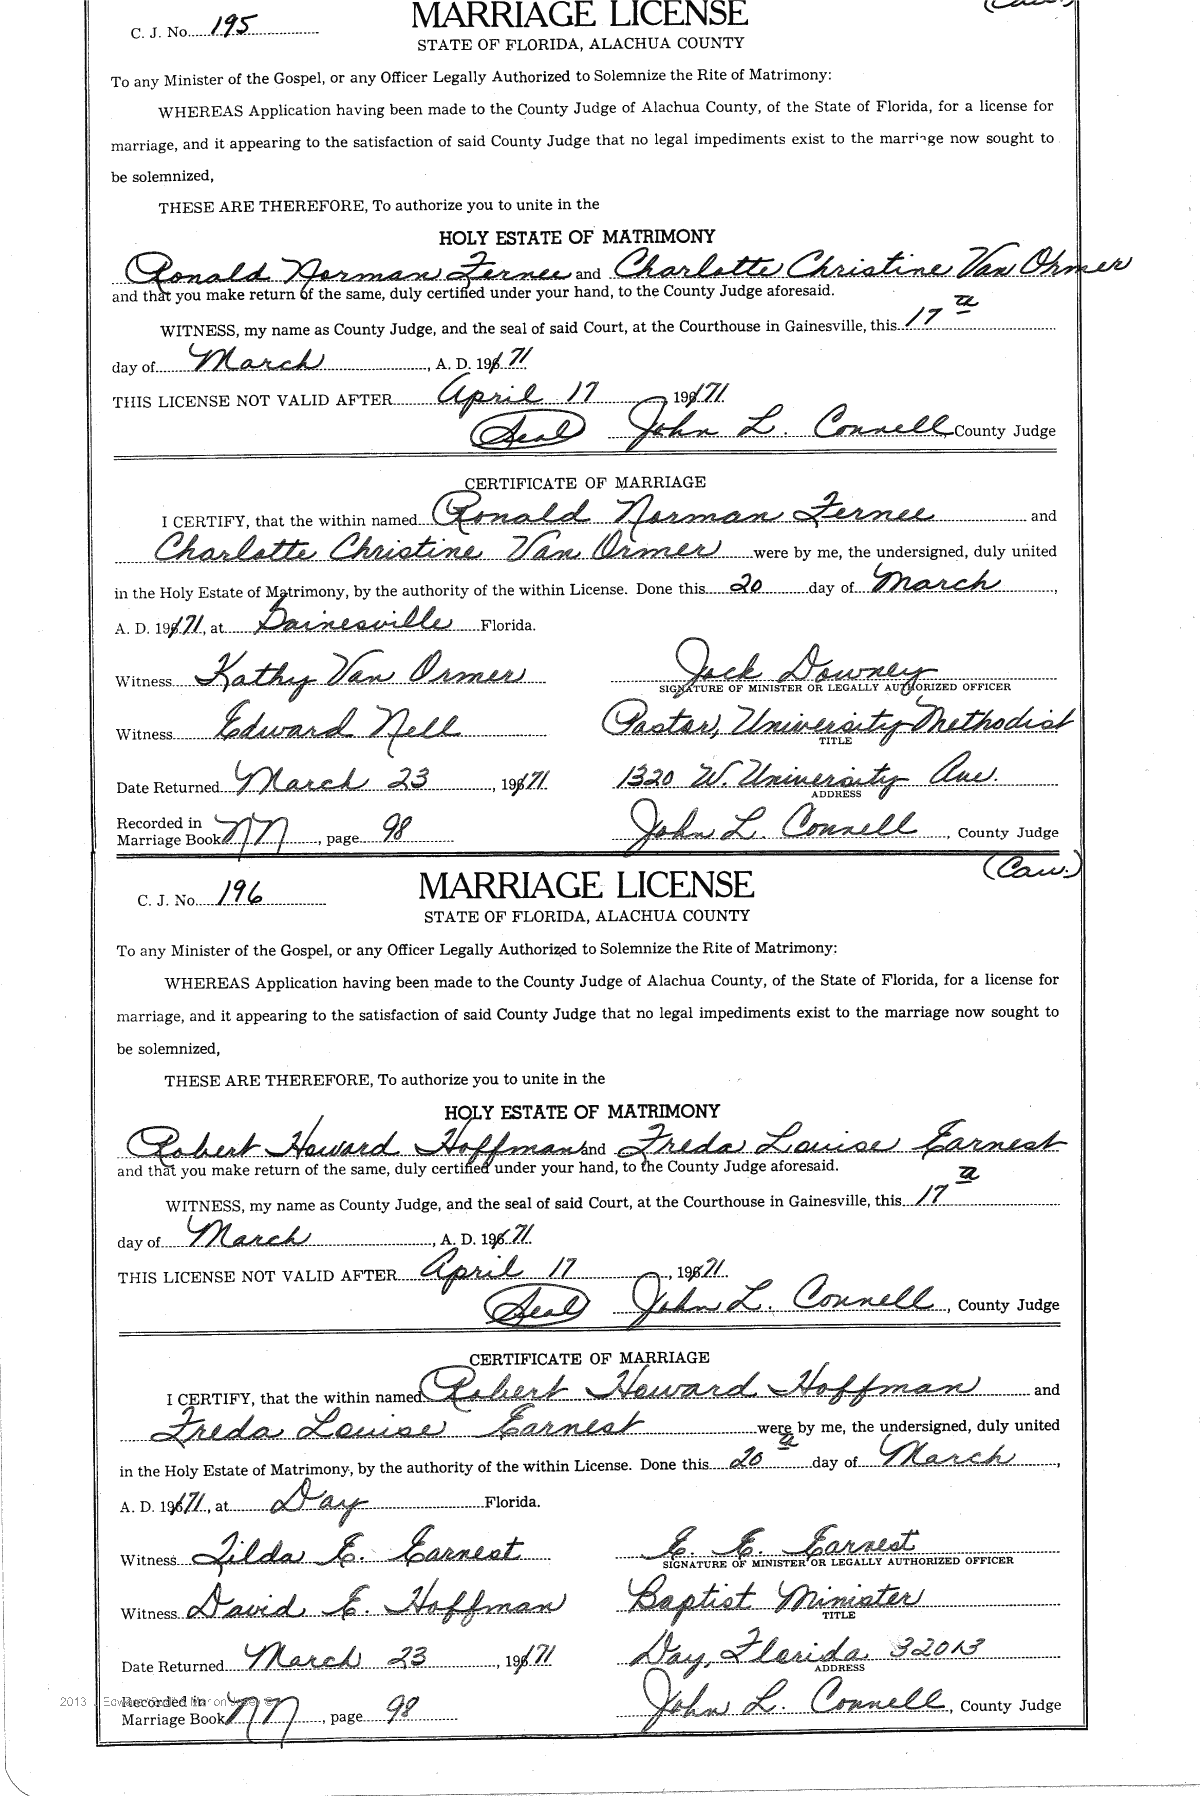 (Caw.)
C. J. No. 195
MARRIAGE LICENSE
STATE OF FLORIDA, ALACHUA COUNTY
To any Minister of the Gospel, or any Officer Legally Authorized to Solemnize the Rite of Matrimony:
WHEREAS Application having been made to the County Judge of Alachua County, of the State of Florida, for a license for
marriage, and it appearing to the satisfaction of said County Judge that no legal impediments exist to the marriage now sought to
be solemnized,
THESE ARE THEREFORE, To authorize you to unite in the
HOLY ESTATE OF MATRIMONY
Ronald Norman Fernee and Charlotte Christine Van Ormer
and that you make return of the same, duly certified under your hand, to the County Judge aforesaid.
WITNESS, my name as County Judge, and the seal of said Court, at the Courthouse in Gainesville, this 17th
day of March, A. D. 19671
THIS LICENSE NOT VALID AFTER April 17, 19671
(Seal) John L. Connell County Judge
CERTIFICATE OF MARRIAGE
I CERTIFY, that the within named Ronald Norman Fernee and
Charlotte Christine Van Ormer were by me, the undersigned, duly united
in the Holy Estate of Matrimony, by the authority of the within License. Done this 20 day of March,
A. D. 19671, at Gainesville Florida.
Witness Kathy Van Ormer Jack Downey
SIGNATURE OF MINISTER OR LEGALLY AUTHORIZED OFFICER
Witness Edward Nell Pastor, University Methodist
TITLE
Date Returned March 23, 19671 1320 W. University Ave.
ADDRESS
Recorded in
Marriage Book NN, page 98 John L. Connell, County Judge
(Caw.)
C. J. No. 196
MARRIAGE LICENSE
STATE OF FLORIDA, ALACHUA COUNTY
To any Minister of the Gospel, or any Officer Legally Authorized to Solemnize the Rite of Matrimony:
WHEREAS Application having been made to the County Judge of Alachua County, of the State of Florida, for a license for
marriage, and it appearing to the satisfaction of said County Judge that no legal impediments exist to the marriage now sought to
be solemnized,
THESE ARE THEREFORE, To authorize you to unite in the
HOLY ESTATE OF MATRIMONY
Robert Howard Hoffman and Freda Louise Earnest
and that you make return of the same, duly certified under your hand, to the County Judge aforesaid.
WITNESS, my name as County Judge, and the seal of said Court, at the Courthouse in Gainesville, this 17th
day of March, A. D. 19671
THIS LICENSE NOT VALID AFTER April 17, 19671
(Seal) John L. Connell, County Judge
CERTIFICATE OF MARRIAGE
I CERTIFY, that the within named Robert Howard Hoffman and
Freda Louise Earnest were by me, the undersigned, duly united
in the Holy Estate of Matrimony, by the authority of the within License. Done this 20th day of March,
A. D. 19671, at Day Florida.
Witness Zilda E. Earnest E. E. Earnest
SIGNATURE OF MINISTER OR LEGALLY AUTHORIZED OFFICER
Witness David E. Hoffman Baptist Minister
TITLE
Date Returned March 23, 19671 Day, Florida 32013
ADDRESS
2013
Recorded in
Marriage Book NN, page 98 John L. Connell, County Judge